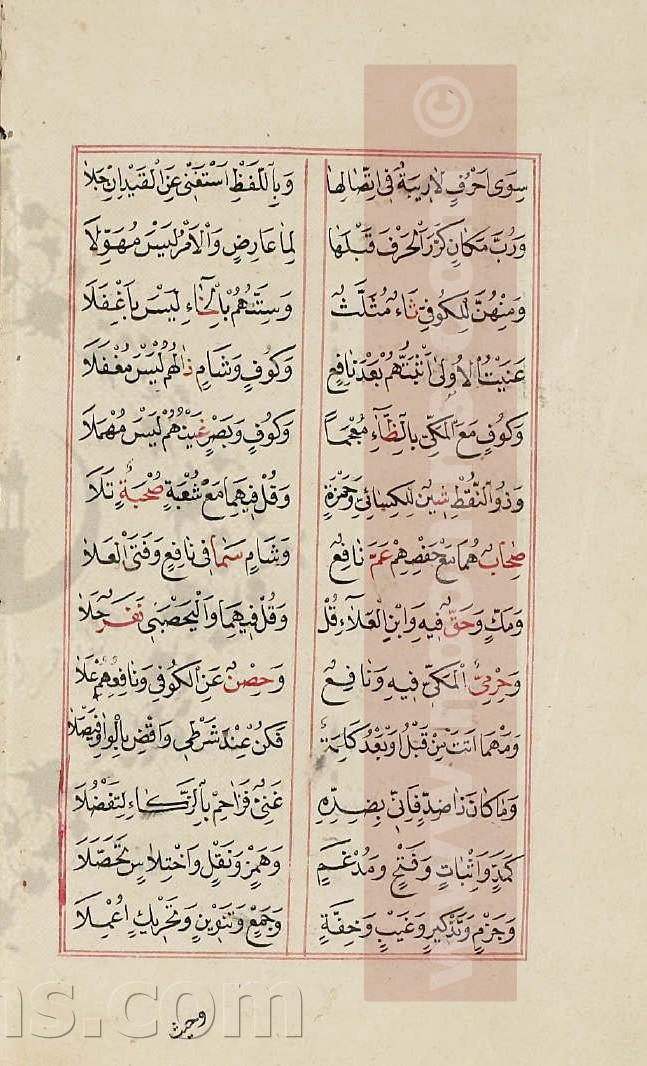 سِوَى اَحْرُفٍ لَا رِيبَةٌ فِى اتِّصَالِهَا وَبِاللَّفْظِ اَسْتَغْنِى عَنِ الْقَيْدِ اِنْ جَلَا
وَرُبَّ مَكَانٍ كَرَّرَ الْحَرْفَ قَبْلَهَا لِمَا عَارِضٍ وَالْاَمْرُ لَيْسَ مُهَوِّلَا
وَمِنْهُنَّ لِلْكُوفِىِّ ثَاءٌ مُثَلَّثٌ وَسِتَّتُهُمْ بِالْخَاءِ لَيْسَ بِاَغْفَلَا
عَنَيْتُ الْاُولَى اَثْبَتُّهُمْ بَعْدَ نَافِعٍ وَكُوفٍ وَشَامٍ ذَالُهُمْ لَيْسَ مُغْفَلَا
وَكُوفٍ مَعَ الْمَكِّىِّ بِالظَّاءِ مُعْجَمًا وَكُوفٍ وَبَصْرٍ غَيْنُهُمْ لَيْسَ مُهْمَلَا
وَذُو النَّقْطِ شِينٌ لِلْكِسَائِى وَحَمْزَةٍ وَقُلْ فِيهِمَا مَعْ شُعْبَةٍ صُحْبَةٌ تَلَا
صِحَابٌ هُمَا مَعْ حَفْصِهِمْ عَمَّ نَافِعٌ وَشَامٍ سَمَا فِى نَافِعٍ وَفَتَى الْعَلَا
وَمَكٍّ وَحَقٌّ فِيهِ وَابْنِ الْعَلَاءِ قُلْ وَقُلْ فِيهِمَا وَالْيَحْصَبِى نَفَرٌ حَلَا
وَحِرْمِىٌّ الْمَكِّىُّ فِيهِ وَنَافِعٌ وَحِصْنٌ عَنِ الْكُوفِى وَنَافِعِهِمْ عَلَا
وَمَهْمَا اَتَتْ مِنْ قَبْلُ اَوْ بَعْدُ كَلِمَةٌ فَكُنْ عِنْدَ شَرْطِى وَاقْضِ بِالْوَاوِ فَيْصَلَا
وَمَا كَانَ ذَا ضِدٍّ فَاِنِّى بِضِدِّهِ غَنِىٌّ فَزَاحِمْ بِالذَّكَاءِ لِتَفْضُلَا
كَمَدٍّ وَاِثْبَاتٍ وَفَتْحٍ وَمُدْغَمٍ وَهَمْزٍ وَنَقْلٍ وَاخْتِلَاسٍ تَحَصَّلَا
وَجَزْمٍ وَتَذْكِيرٍ وَغَيْبٍ وَخِفَّةٍ وَجَمْعٍ وَتَنْوِينٍ وَتَحْرِيكٍ اُعْمِلَا
وحيث
ms.com
©